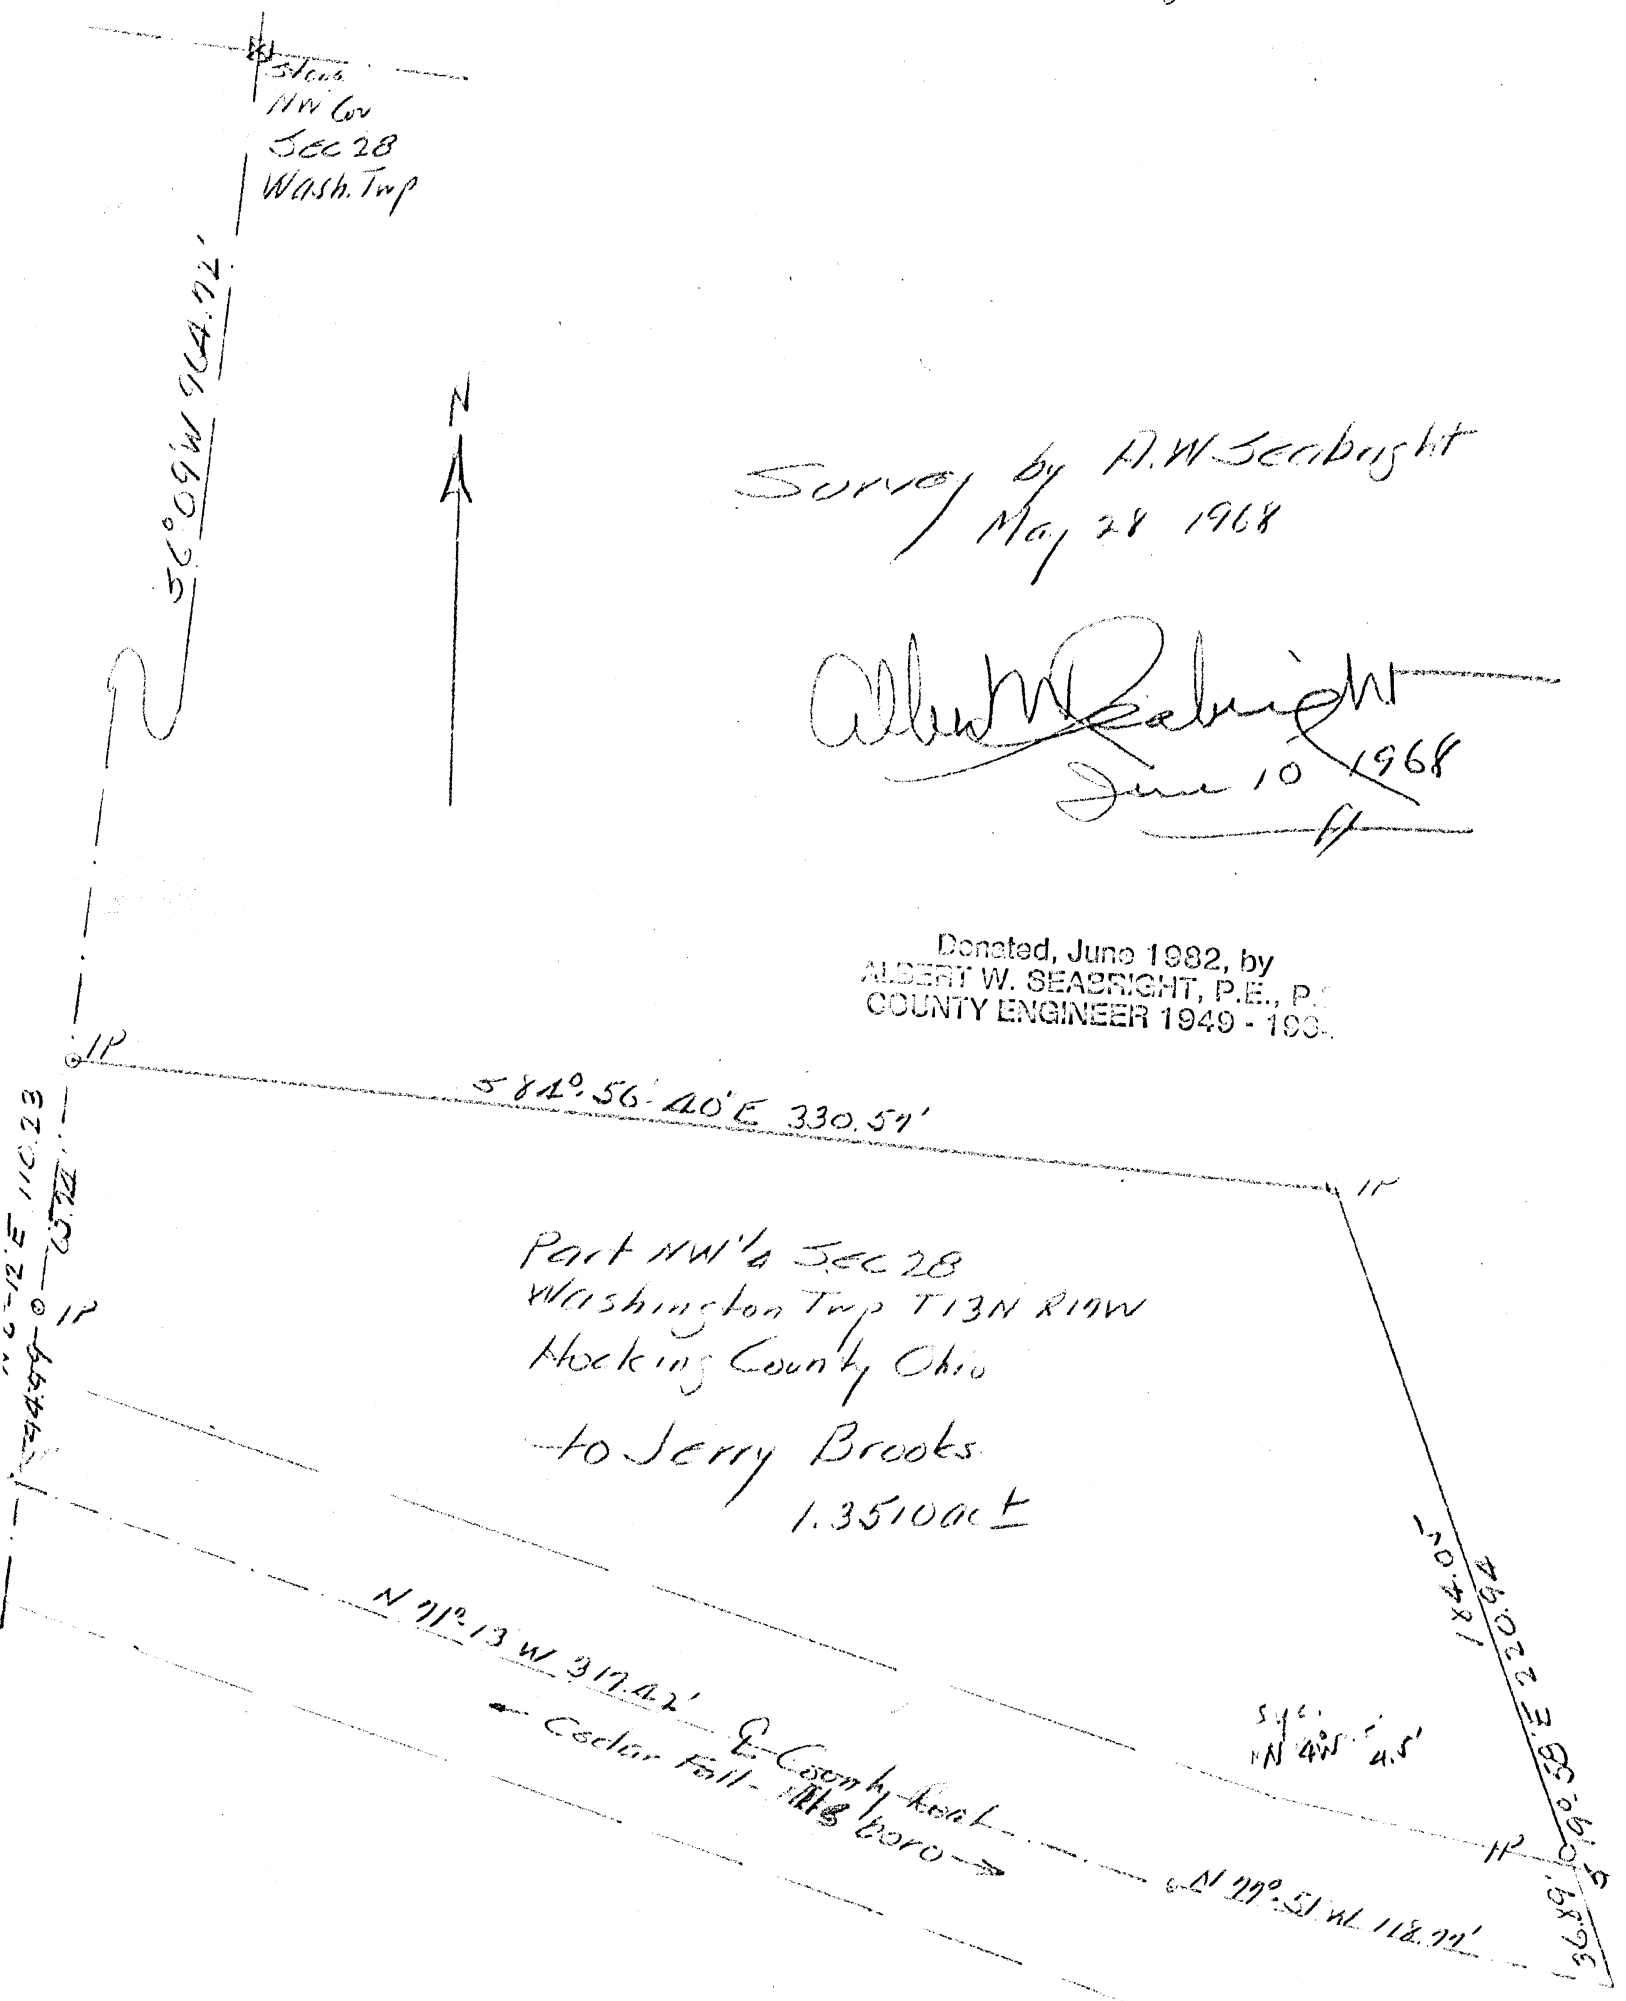 Stone
NW Cor
Sec 28
Wash. Twp
S6°09'W 964.72'
N
Survey by A.W Seabright
May 28 1968
Albert W Seabright
June 10 1968
Donated, June 1982, by
ALBERT W. SEABRIGHT, P.E., P.
COUNTY ENGINEER 1949 - 19
IP
S 84°-56'-40" E 330.57'
IP
N 6°-12' E 110.23
65.74
IP
44.49
Part NW 1/4 Sec 28
Washington Twp T13N R17W
Hocking County Ohio
to Jerry Brooks
1.3510 ac ±
184.05
S 19°-38' E 220.94
N 71°-13 W 317.42'
℄ County Road
← Cedar Fall - boro →
N 4W 4.5'
IP
N 77°-51 W 118.77'
36.89'